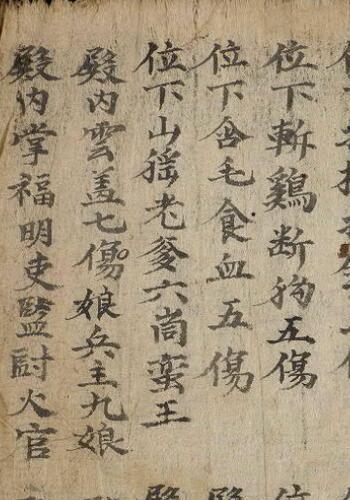 位下斬鷄断狗五傷
位下含毛食血五傷
位下山猺老爹六啇蛮王
殿内雲盖七傷娘兵主九娘
殿内掌福明吏監厨火官